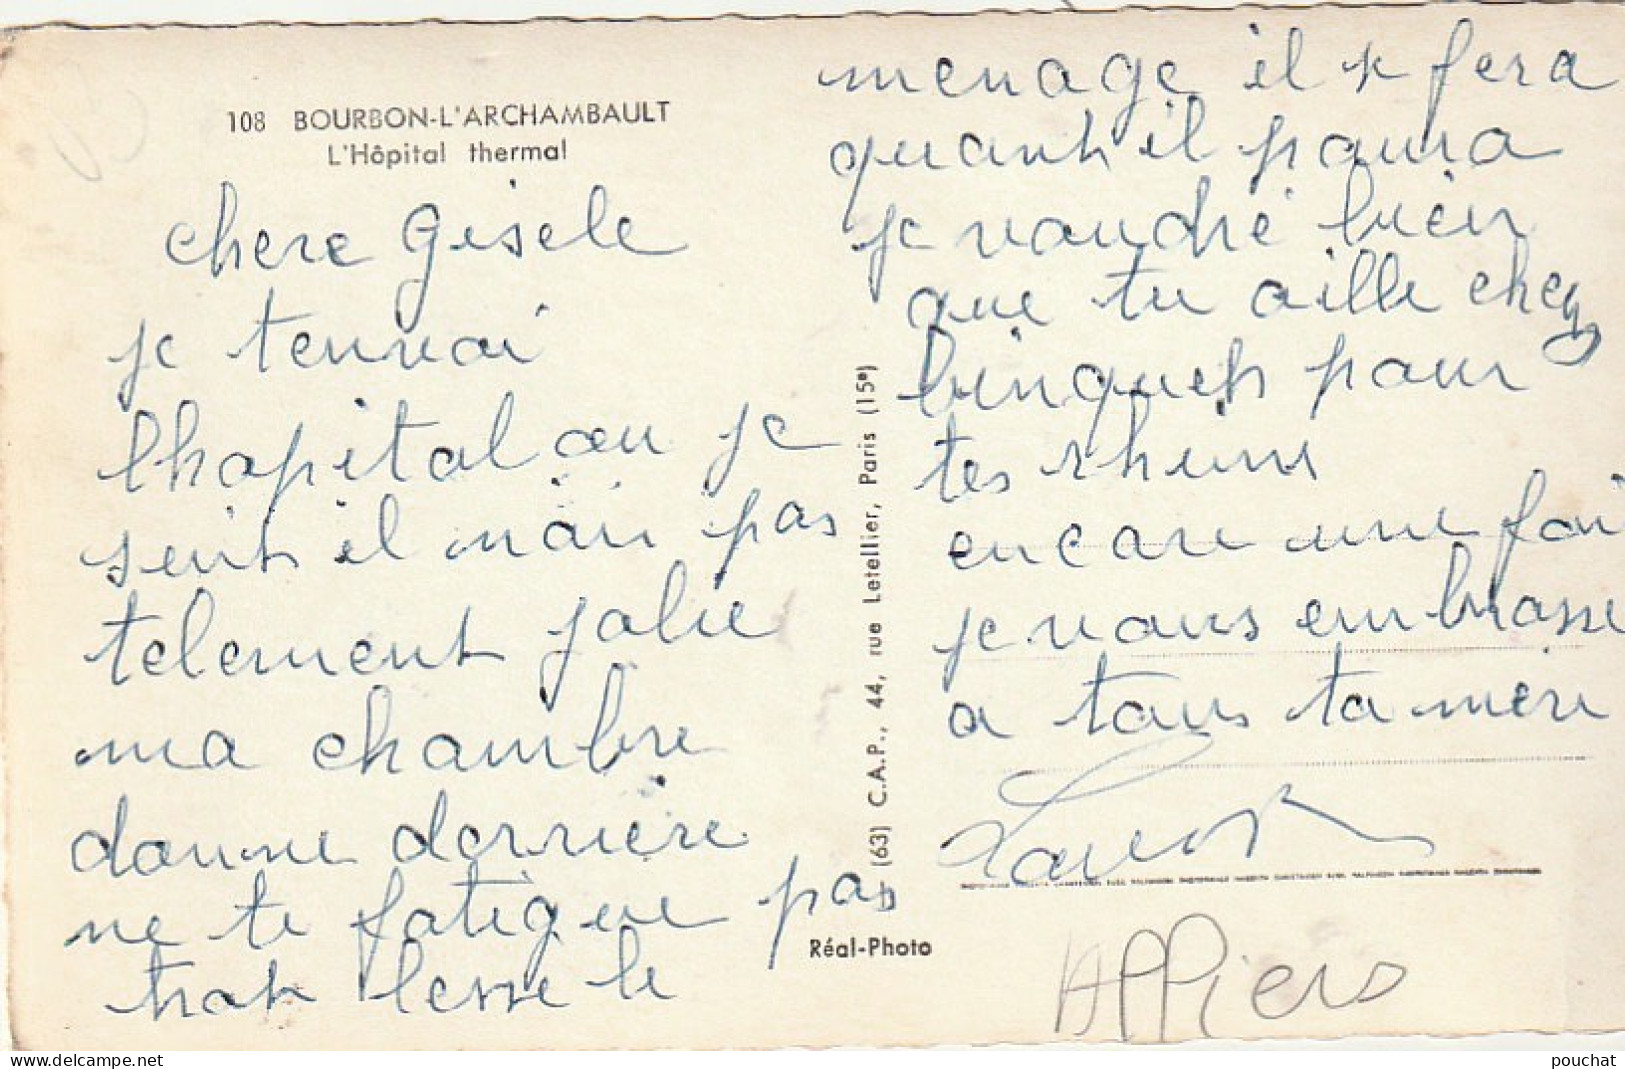 108 BOURBON-L'ARCHAMBAULT
L'Hôpital thermal
chere Gisele
je tenvoi
lhopital ou je
seuit il mais pas
telement jolie
ma chambre
donne derriere
ne te fatigue pas
trot lesse le
menage il se fera
quant il poura
je voudré bien
que tu aille chez
pour
tes rhums
encore une foi
je vous embrasse
a tous ta mere
(63) C.A.P., 44, rue Letellier, Paris (15e)
Réal-Photo
Affiers
pouchat
www.delcampe.net